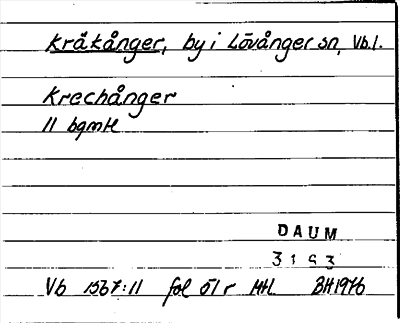 Kråkånger, by i Lövånger sn, Vb.l.
Krechånger
11 bgmtl
DAUM
3193
Vb 1567:11 fol 51r Mtl BH1976